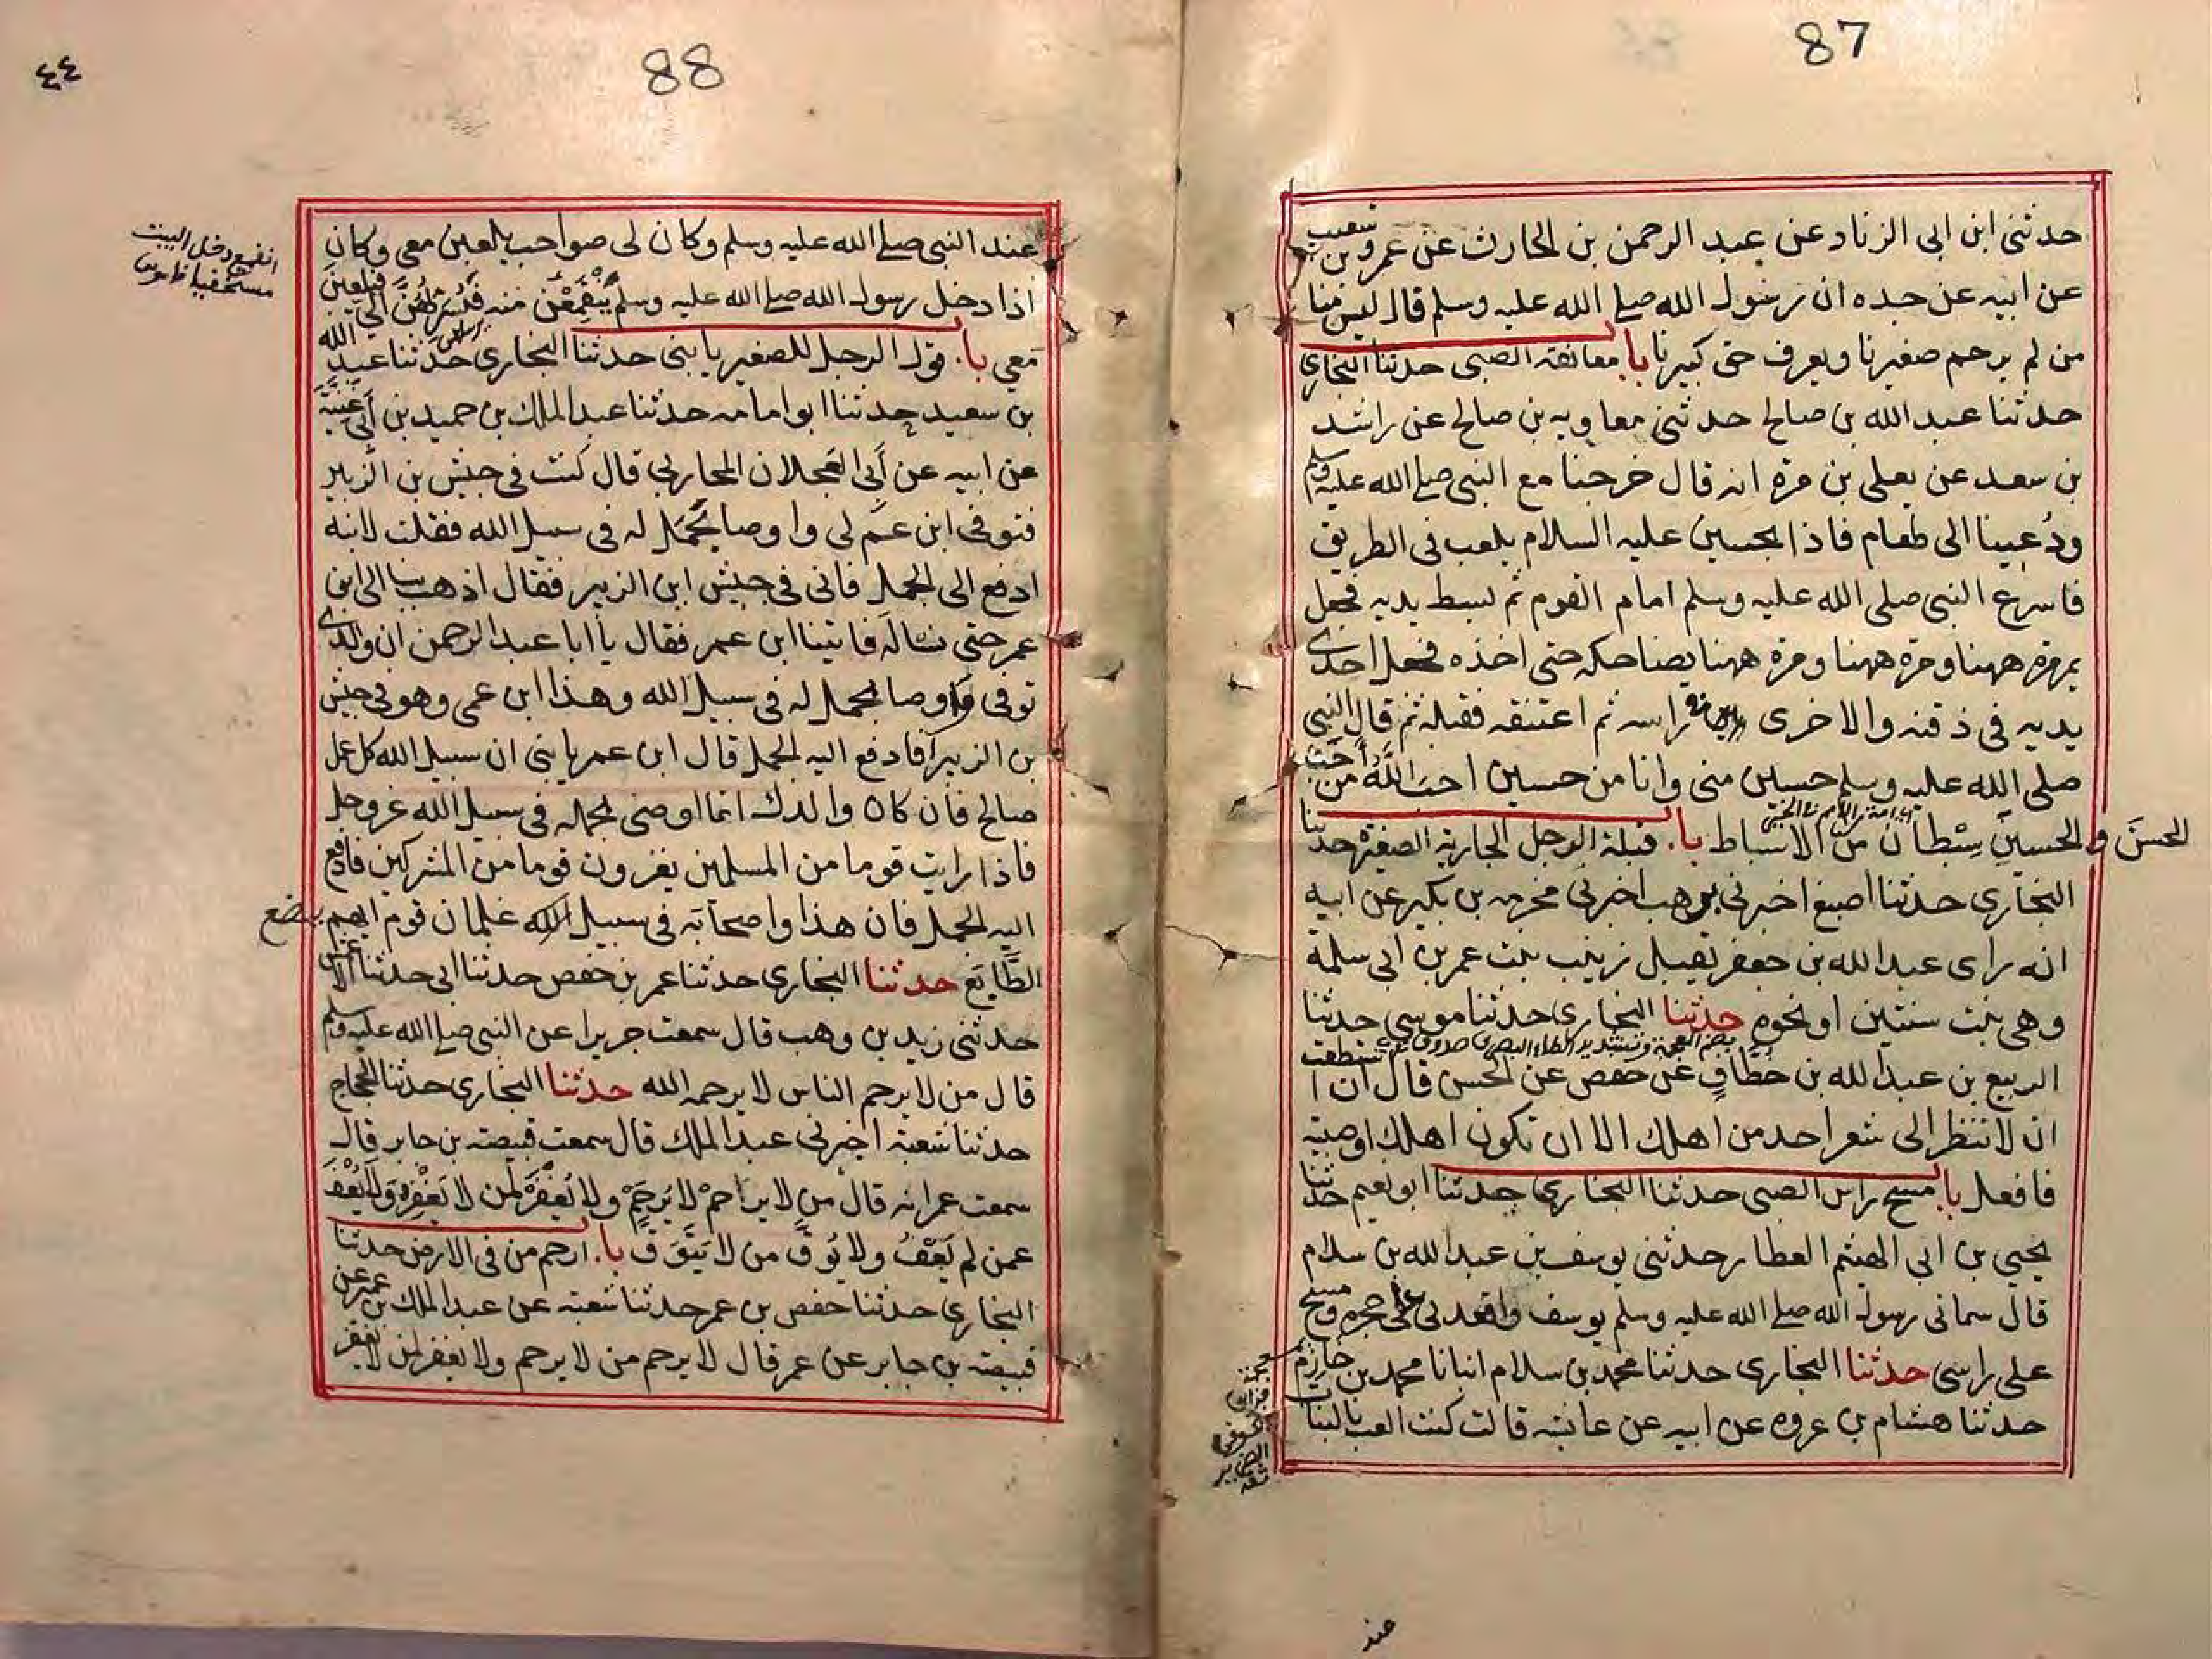 87
حدثنى ابن ابى الزناد عن عبد الرحمن بن الحارث عن عمرو بن شعيب
عن ابيه عن جده ان رسول الله صلے الله عليه وسلم قال ليس منا
من لم يرحم صغيرنا ويعرف حق كبيرنا با معانقة الصبى حدثنا البخارى
حدثنا عبد الله بن صالح حدثنى معاويه بن صالح عن راشد
بن سعد عن يعلى بن مرة انه قال خرجنا مع النبى صلے الله عليه وسلم
ودُعينا الى طعام فاذا بحسين عليه السلام يلعب فى الطريق
فاسرع النبى صلى الله عليه وسلم امام القوم ثم بسط يديه فجعل
يمر مرة ههنا ومرة ههنا يضاحكه حتى اخذه فجعل احدى
يديه فى ذقنه والاخرى فى راسه ثم اعتنقه فقبله ثم قال النبى
صلى الله عليه وسلم حسين منى وانا من حسين احب اللّٰهُ من أَحَبَّ
الحسنَ والحسينِ سِبْطان من الاسباط با. قبلة الرجل الجارية الصغيرة حدثنا
البخارى حدثنا اصبغ اخبرنى بن وهب اخبرنى مخرمه بن بكير عن ابيه
انه راى عبد الله بن جعفر يقبل زينب بنت عمر بن ابى سلمة
وهى بنت سنتين او نحوه حدثنا البخارى حدثنا موسى حدثنا
بضم المعجمة وتشديد الطاء البصرى صدوق
الربيع بن عبد الله بن خُطَّافٍ عن حفص عن الحسن قال ان استطعت
ان لا تنظر الى شعر احد من اهلك الا ان تكون اهلك او صبية
فافعل با. مسح راس الصبى حدثنا البخارى حدثنا ابو نعيم حدثنا
يحيى بن ابى الهيثم العطار حدثنى يوسف بن عبد الله بن سلام
قال سمانى رسول الله صلے الله عليه وسلم يوسف واقعدنى على حجره ومسح
على راسى حدثنا البخارى حدثنا محمد بن سلام انبانا محمد بن خازم
حدثنا هشام بن عروه عن ابيه عن عائشه قالت كنت العب بالبنات
الضرير
ثقه
عند
88
٤٤
عند النبى صلے الله عليه وسلم وكان لى صواحب يلعبن معى وكان
اذا دخل رسول الله صلے الله عليه وسلم يَنْقَمِعْنَ منه فَيُسَرِّبُهُنَّ اليَّ فيلعبنَ
معى با. قول الرجل للصغير يا بنى حدثنا البخارى حدثنا عبد الله
بن سعيد حدثنا ابو امامه حدثنا عبد الملك بن حميد بن أَبى غَنِيَّةَ
عن ابيه عن أَبى العجلان المحاربى قال كنت فى جيش بن الزبير
فتوفى ابن عم لى واوصا بجمل له فى سبيل الله فقلت لابنه
ادفع الى الجمل فانى فى جيش ابن الزبير فقال اذهب بنا الى ابن
عمر حتى نساله فاتينا ابن عمر فقال يا ابا عبد الرحمن ان والدى
توفى واوصا بجمل له فى سبيل الله وهذا ابن عمى وهو فى جيش
بن الزبير أفادفع اليه الجمل قال ابن عمر يا بنى ان سبيل الله كل عمل
صالح فان كان والدك انما اوصى بجمله فى سبيل الله عز وجل
فاذا رايت قوما من المسلمين يغزون قوما من المشركين فادفع
اليه الجمل فان هذا واصحابه فى سبيل الله غلمان قوم ايهم يضع
الطَّابَع حدثنا البخارى حدثنا عمر بن حفص حدثنا ابى حدثنا الاعمش
حدثنى زيد بن وهب قال سمعت جريرا عن النبى صلے الله عليه وسلم
قال من لا يرحم الناس لا يرحمه الله حدثنا البخارى حدثنا الحجاج
حدثنا شعبة اخبرنى عبد الملك قال سمعت قبيصة بن جابر قال
سمعت عمر انه قال من لا يراحمْ لا يُرحَمْ ولا يُغْفَرُ لمن لا يَغْفِرُ وَلَا يُعْفَ
عمن لم يَعْفُ ولا يُوَقَّ من لا يَتَوَقَّ با. ارحم من فى الارض حدثنا
البخارى حدثنا حفص بن عمر حدثنا شعبه عن عبد الملك بن عمير عن
قبيصه بن جابر عن عمر قال لا يرحم من لا يرحم ولا يغفر لمن لا يغفر
انقمع دخل البيت
مستخفيا قاموس